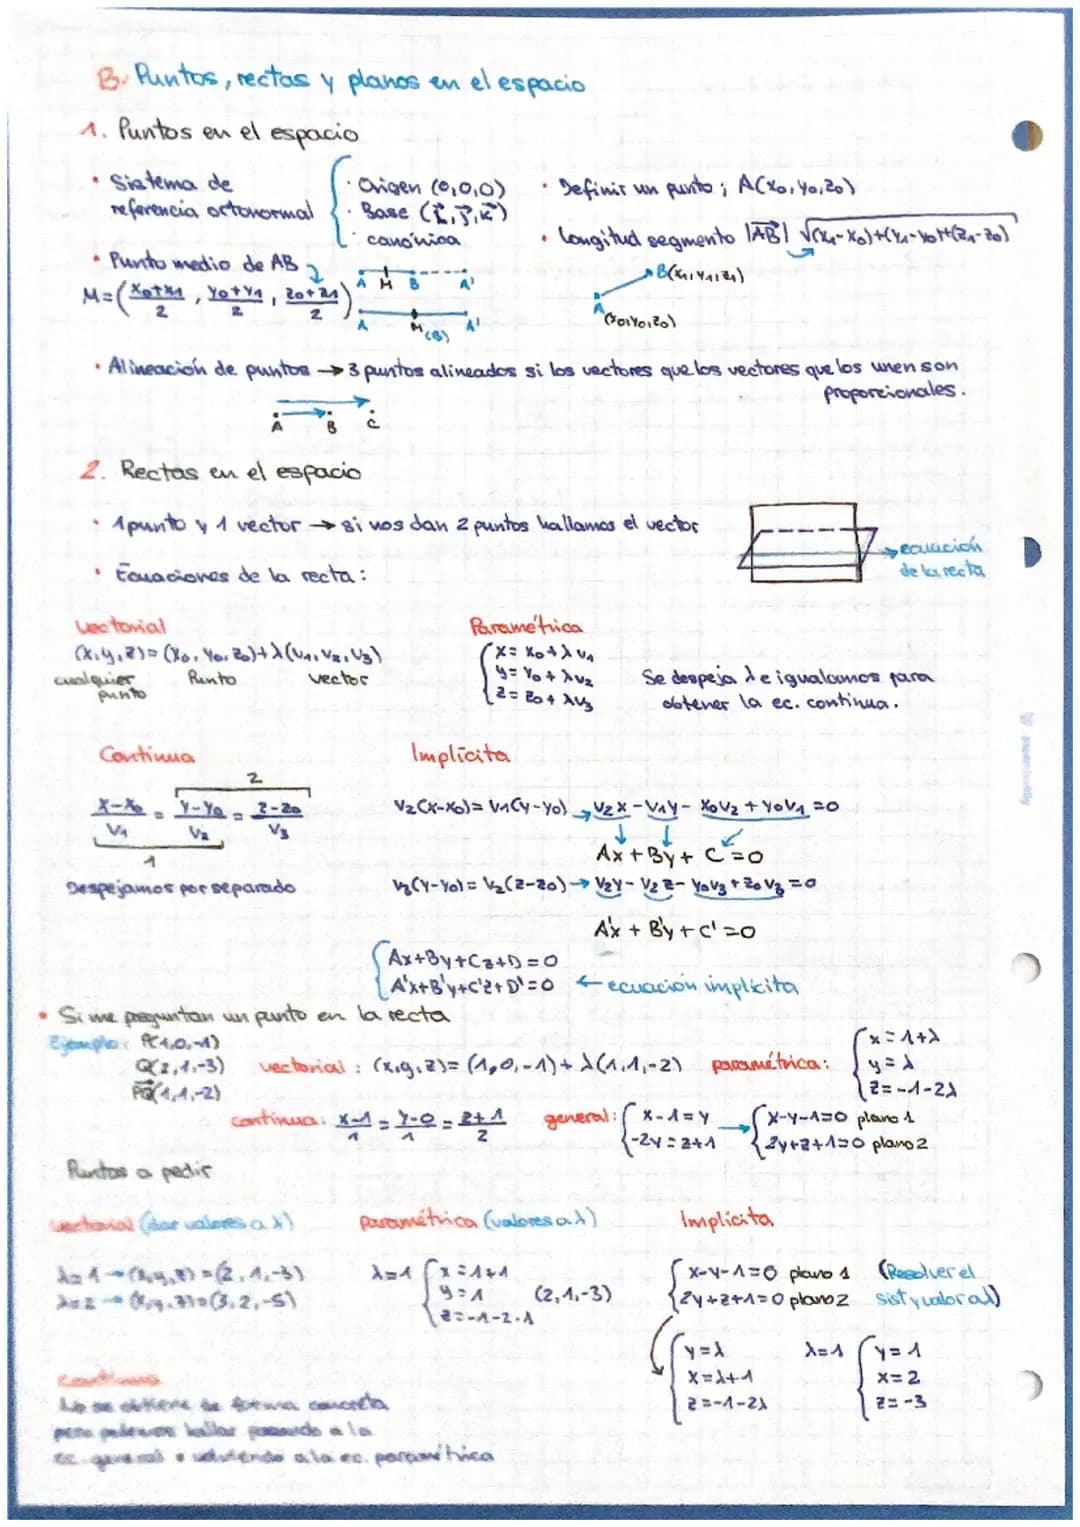 B. Puntos, rectas y planos en el espacio
1. Puntos en el espacio
• Sistema de referencia ortonormal { · Origen (0,0,0) · Base (i⃗, j⃗, k⃗) · canónica
• Definir un punto ; A(x₀, y₀, z₀)
• Longitud segmento |AB⃗| √(x₁-x₀)+(y₁-y₀)+(z₁-z₀)
A (x₀,y₀,z₀) B(x₁,y₁,z₁)
• Punto medio de AB
M=(x₀+x₁/2 , y₀+y₁/2 , z₀+z₁/2)
A M B A'
A M (B) A'
• Alineación de puntos → 3 puntos alineados si los vectores que los vectores que los unen son
proporcionales.
A B C
2. Rectas en el espacio
• 1 punto y 1 vector → si nos dan 2 puntos hallamos el vector
→ ecuación
de la recta
• Ecuaciones de la recta:
Vectorial
(x,y,z)=(x₀, y₀, z₀)+λ(v₁, v₂, v₃)
cualquier punto Punto vector
Paramétrica
{ x= x₀+λv₁
y= y₀+λv₂
z= z₀+λv₃
Se despeja λ e igualamos para
obtener la ec. continua.
Continua
2
x-x₀/v₁ = y-y₀/v₂ = z-z₀/v₃
1
Despejamos por separado
Implícita
v₂(x-x₀)= v₁(y-y₀) → v₂x-v₁y- x₀v₂+y₀v₁=0
Ax+By+ C=0
v₃(y-y₀)= v₂(z-z₀) → v₂y-v₂z- y₀v₃+z₀v₃=0
A'x + B'y+C'=0
{ Ax+By+Cz+D=0
A'x+B'y+C'z+D'=0 ← ecuación implícita
• Si me preguntan un punto en la recta
Ejemplo: P(1,0,-1)
Q(2,1,-3)
PQ⃗(1,1,-2)
vectorial: (x,y,z)= (1,0,-1)+λ(1,1,-2)
paramétrica: { x=1+λ
y=λ
z=-1-2λ
continua: x-1/1 = y-0/1 = z+1/2
general: { x-1=y
-2y=z+1
→ { x-y-1=0 plano 1
2y+z+1=0 plano 2
Puntos a pedir
vectorial (dar valores a λ)
λ=1 → (x,y,z)=(2,1,-3)
λ=2 → (x,y,z)=(3,2,-5)
paramétrica (valores a λ)
λ=1 { x=1+1
y=1
z=-1-2·1
(2,1,-3)
Implícita
{ x-y-1=0 plano 1
2y+z+1=0 plano 2
(Resolver el
sist y valor a λ)
{ y=λ
x=λ+1
z=-1-2λ
λ=1 { y=1
x=2
z=-3
continua
No se obtiene de forma concreta
pero podemos hallar pasando a la
ec. general o volviendo a la ec. paramétrica